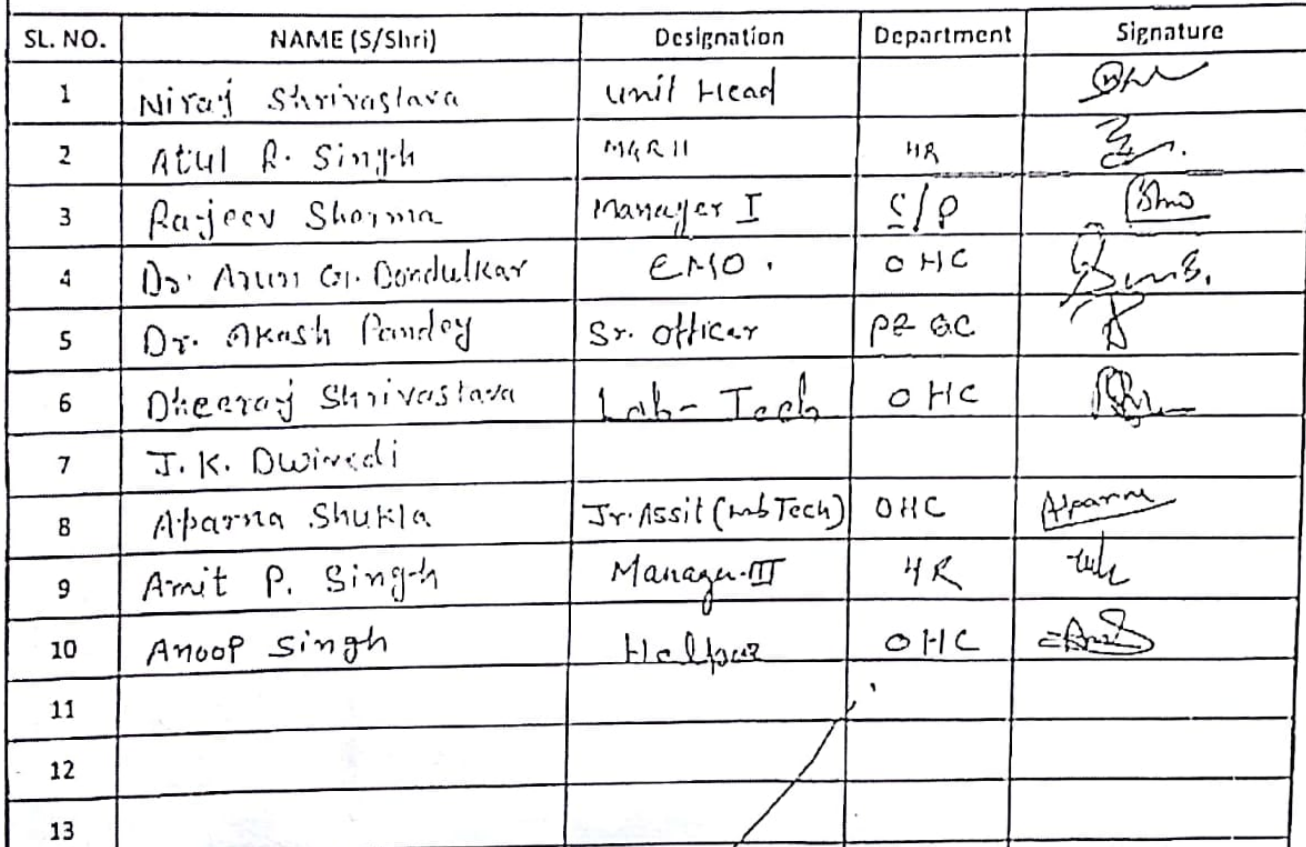 SL. NO. NAME (S/Shri) Designation Department Signature
1 Niraj Shrivastava Unit Head
2 Atul R. Singh MGR II HR
3 Rajeev Sharma Manager I S/P
4 Dr. Arun G. Dondulkar EMO. OHC
5 Dr. Akash Pandey Sr. Officer P2 QC
6 Dheeraj Shrivastava Lab-Tech OHC
7 J.K. Dwivedi
8 Aparna Shukla Jr. Assit (Lab Tech) OHC Aparna
9 Amit P. Singh Manager-III HR
10 Anoop Singh Helpur OHC
11
12
13